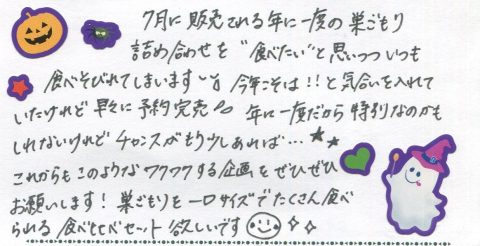 7月に販売される年に一度の巣ごもり
詰め合わせを“食べたい”と思いつついつも
食べそびれてしまいます〜。今年こそは!!と気合いを入れて
いたけれど早々に予約完売 年に一度だから特別なのかも
しれないけれどチャンスがもう少しあれば…
これからもこのようなワクワクする企画をぜひぜひ
お願いします!巣ごもりを一口サイズでたくさん食べ
られる食べ比べセット欲しいです